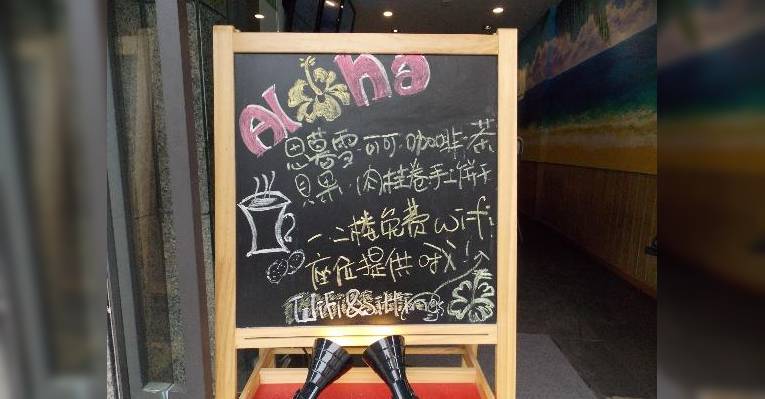 Aloha
思慕雪·可可·咖啡·茶
貝果·肉桂卷手工餅干
一、二楼免费wifi
座位提供哦!
Wifi & Sittings